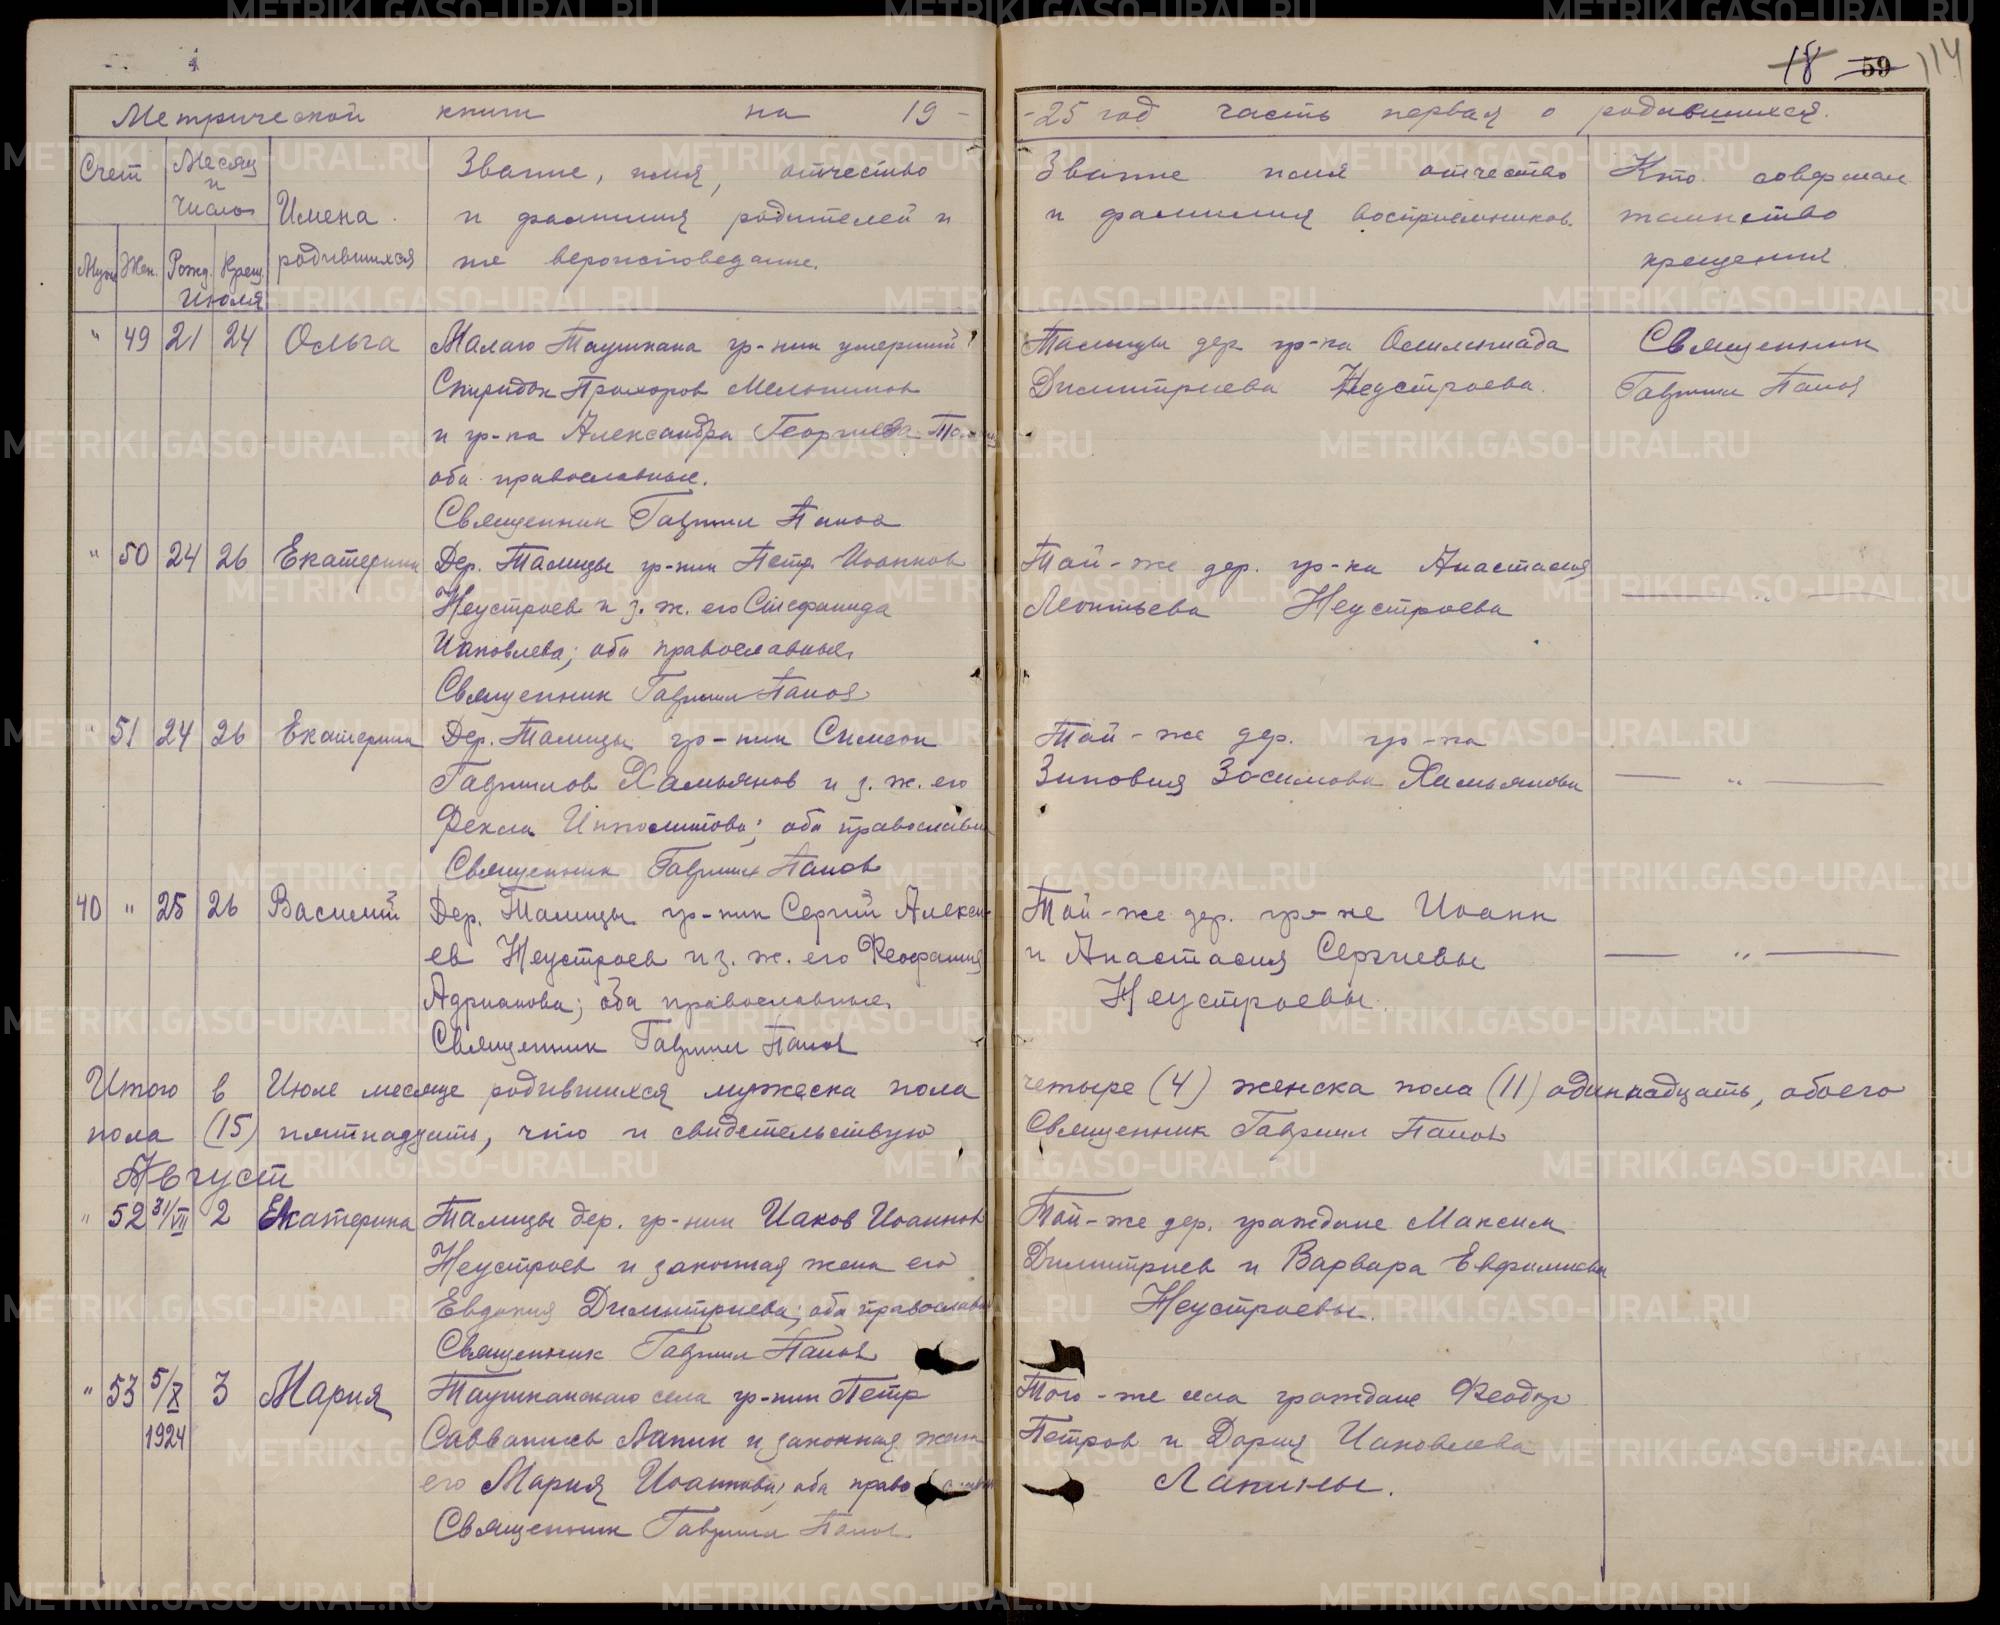 18 59 114
Метрической книги на 19-
-25 год часть первая о родившихся.
Счет
Месяц и число
Имена родившихся
Звание, имя, отчество
и фамилия родителей и
же вероисповедание.
Звание имя отчество
и фамилия восприемников.
Кто совершал
таинство
крещения
Муж. Жен. Рожд. Крещ.
Июля
" 49 21 24 Ольга
Малаго Таушкана гр-нин умерший
Спиридон Прохоров Мельников
и гр-ка Александра Георгиева
оба православные.
Священник Гавриил Панов
Талицы дер. гр-ка Олимпиада
Димитриева Неустроева.
Священник
Гавриил Панов
" 50 24 26 Екатерина
Дер. Талицы гр-нин Петр Иоаннов
Неустроев и з. ж. его Стефанида
Иаковлева; оба православные.
Священник Гавриил Панов
Той-же дер. гр-ка Анастасия
Леонтьева Неустроева
— " —
" 51 24 26 Екатерина
Дер. Талицы гр-нин Симеон
Гаврилов Хамьянов и з. ж. его
Фекла Ипполитова; оба православн
Священник Гавриил Панов
Той-же дер. гр-ка
Зиновия Зосимова Хамьянова
— " —
40 " 25 26 Василий
Дер. Талицы гр-нин Сергий Алексе-
ев Неустроев и з. ж. его Феофания
Адрианова; оба православные.
Священник Гавриил Панов
Той-же дер. гр-не Иоанн
и Анастасия Сергиевы
Неустроевы.
— " —
Итого в Июле месяце родившихся мужеска пола четыре (4) женска пола (11) одиннадцать, обоего
пола (15) пятнадцать, что и свидетельствую Священник Гавриил Панов
Август
" 52 31/VII 2 Екатерина
Талицы дер. гр-нин Иаков Иоаннов
Неустроев и законная жена его
Евдокия Димитриева; оба православн
Священник Гавриил Панов
Той-же дер. граждане Максим
Димитриев и Варвара Евфимиева
Неустроевы.
" 53 5/X 1924 3 Мария
Таушканскаго села гр-нин Петр
Савватиев Лапин и законная жена
его Мария Иоаннова; оба православн
Священник Гавриил Панов.
Того-же села граждане Феодор
Петров и Дария Иаковлева
Лапины.
METRIKI.GASO-URAL.RU